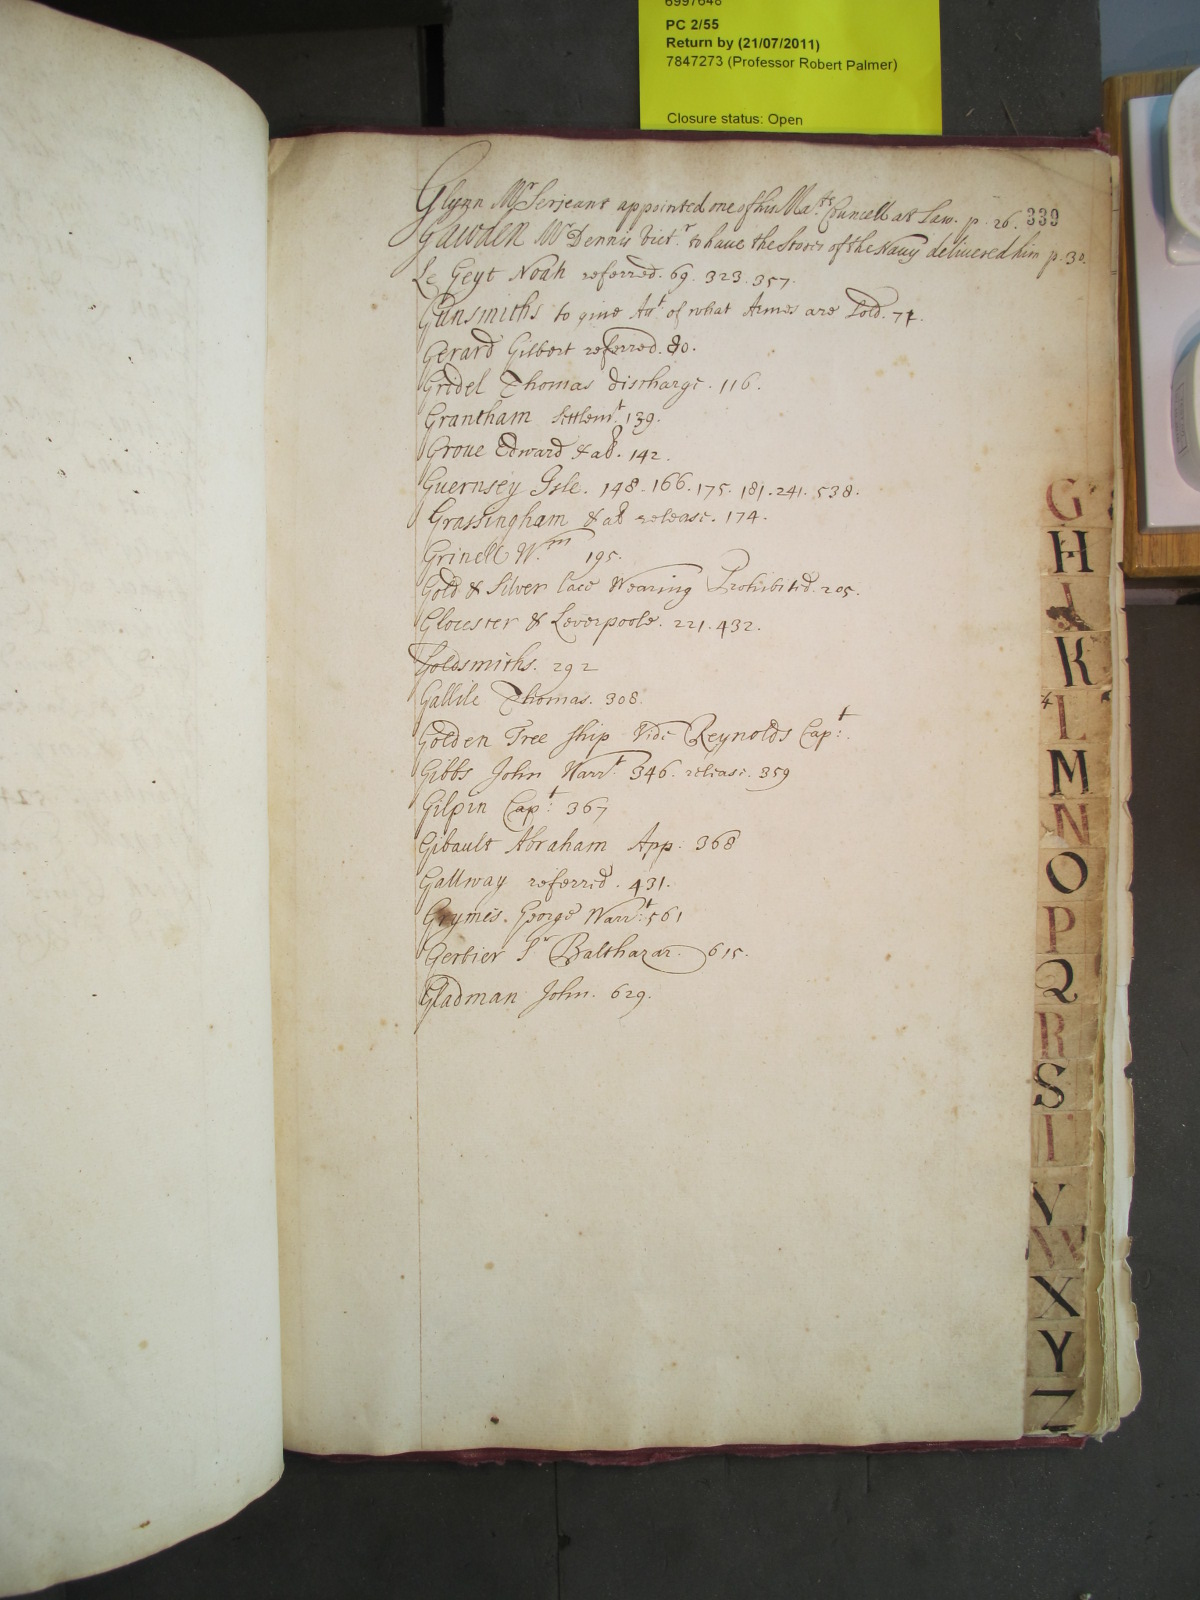 6997648
PC 2/55
Return by (21/07/2011)
7847273 (Professor Robert Palmer)
Closure status: Open
339
Glynn Mr Serjeant appointed one of his Ma:ts Councell at Law. p. 26.
Gawden Mr Dennis Vict:r to have the Stores of the Navy delivered him p. 30.
Le Geyt Noah referred. 69. 323. 357.
Gunsmiths to give Att of what Armes are Sold. 74.
Gerard Gilbert referred. 80.
Gridel Thomas discharge. 116.
Grantham Settlem:t 139.
Groue Edward & al. 142.
Guernsey Isle. 148. 166. 175. 181. 241. 538.
Grassingham & al release. 174.
Grinell W:m 195.
Gold & Silver lace Wearing Prohibited. 205.
Glocester & Leverpoole. 221. 432.
Goldsmiths. 292
Gallile Thomas. 308.
Golden Tree ship Vide Reynolds Cap:t.
Gibbs John Warr:t 346. release. 359
Gilpin Cap:t 367
Gibault Abraham App. 368
Gallway referred. 431.
Grymes. George Warr:t 561
Gerbier Sr Balthazar. 615.
Gladman John. 629.
G
H
I
K
L
M
N
O
P
Q
R
S
T
V
W
X
Y
Z